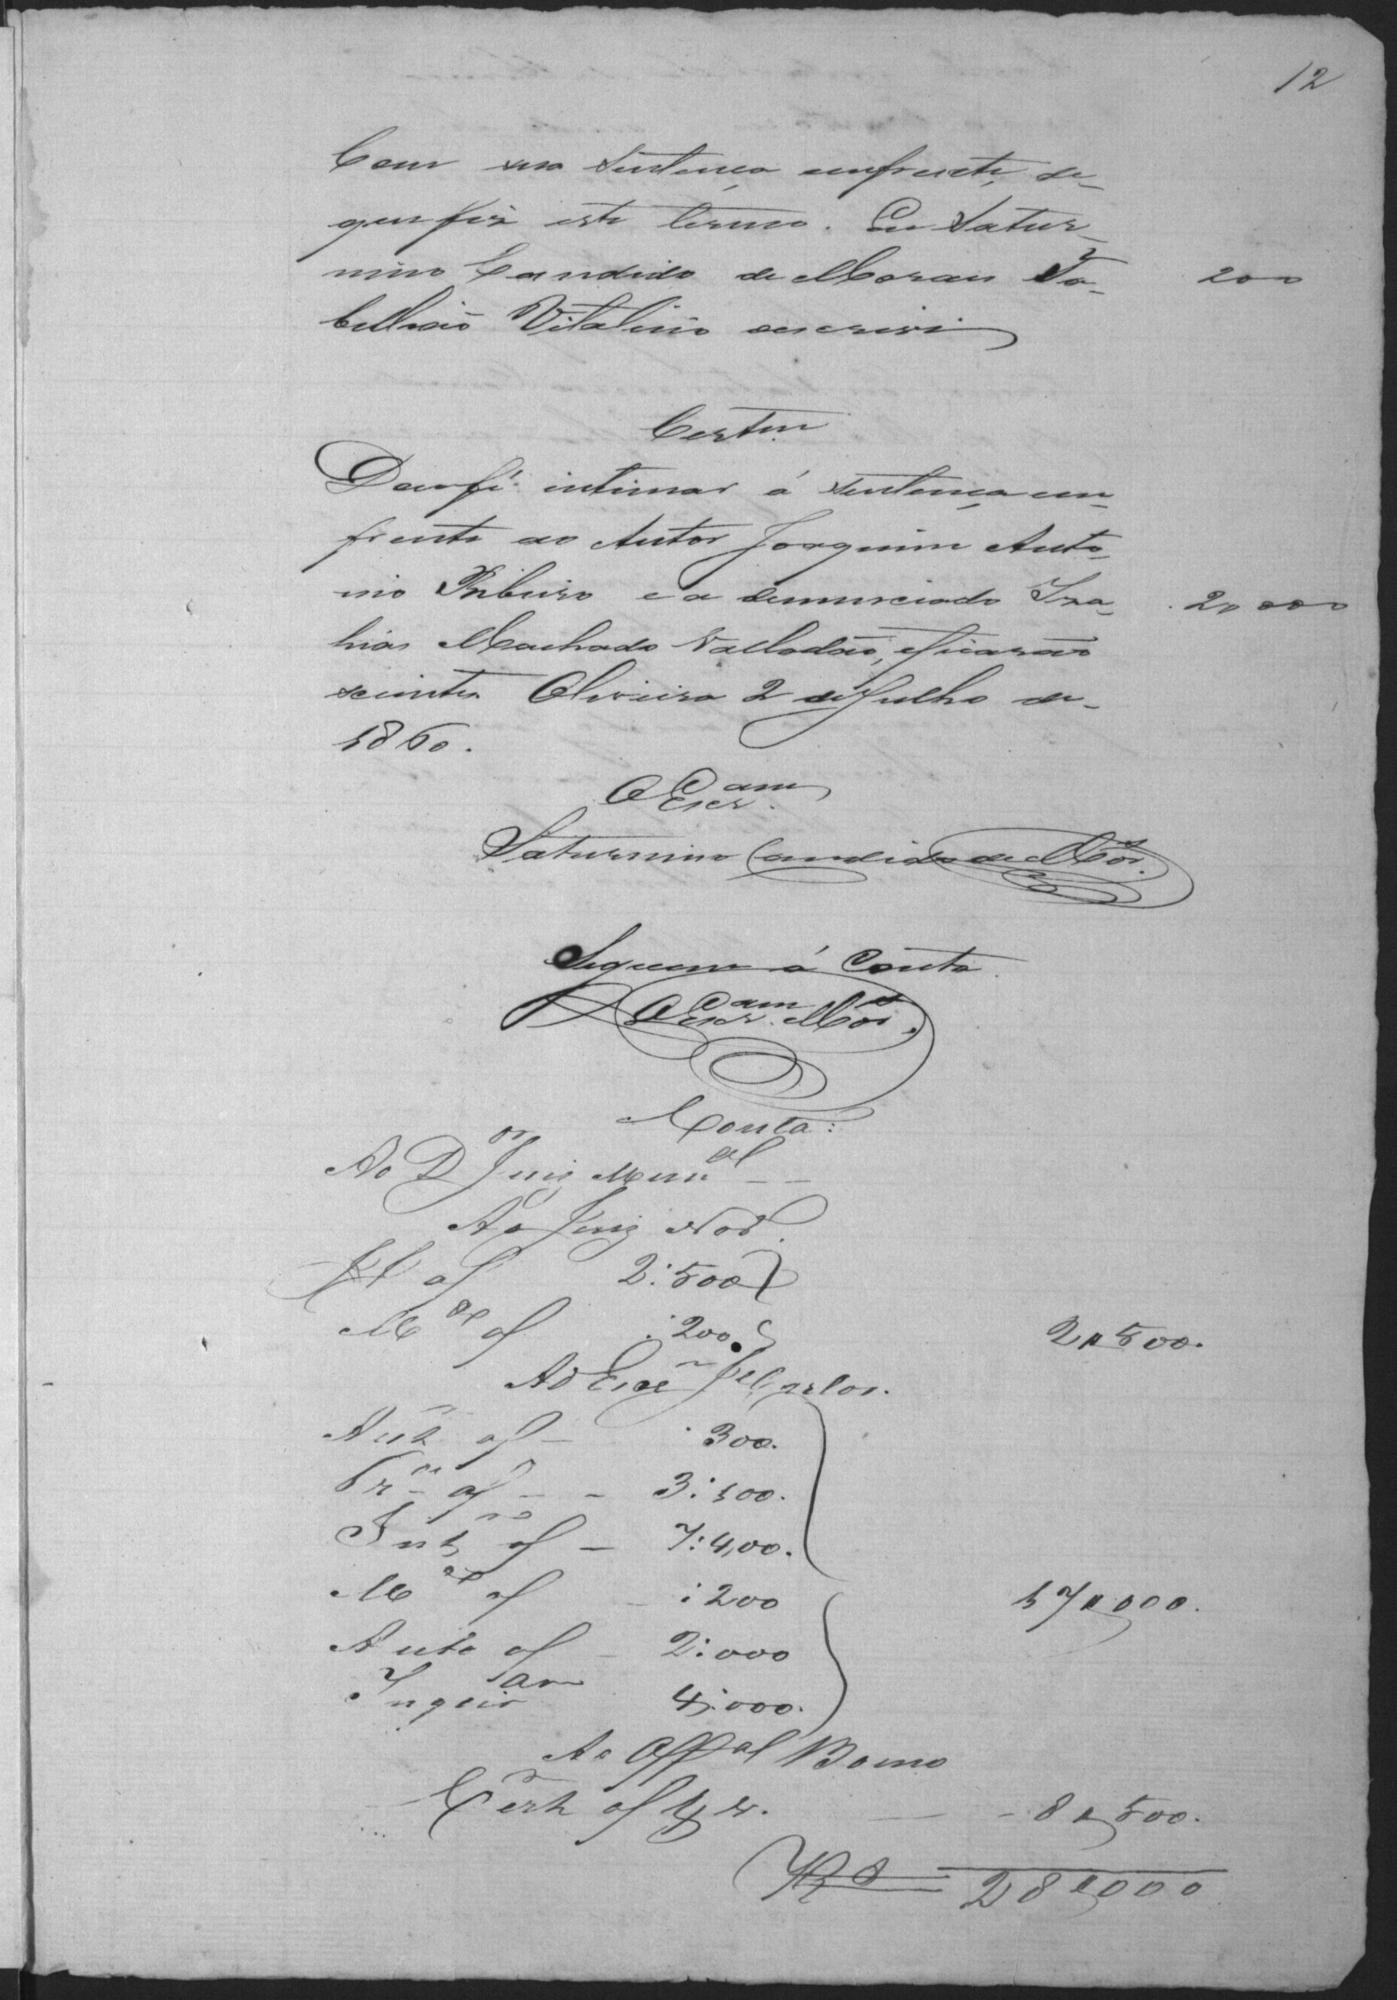 12
Com sua sentença emfrente, de
que fiz este termo. Eu Satur-
nino Candido de Moraes Ta- 200
bellião Vitalicio escrivi
Certm
Dou fé intimar á sentença em
frente ao Autor Joaquim Anto-
nio Ribeiro e a denunciado Iza- 2000
hias Machado Valladão, eficarão
scientes Oliveira 2 de Julho de-
1860.
O Escram
Saturnino Candido de Mos.
Seguem á Conta
O Escram Mos.
Conta:
Ao Dor Juis Munal
Ao Juiz
af 2:500
af :200 2#500.
Ao Escm Carlos.
Aut. af :300.
af 3:100.
af 7:400.
af :200 17#000.
Auto af 2:000
Inqueiram 4:000.
Ao Offal Bomo
Cert. af 8#500.
Rs 28#000